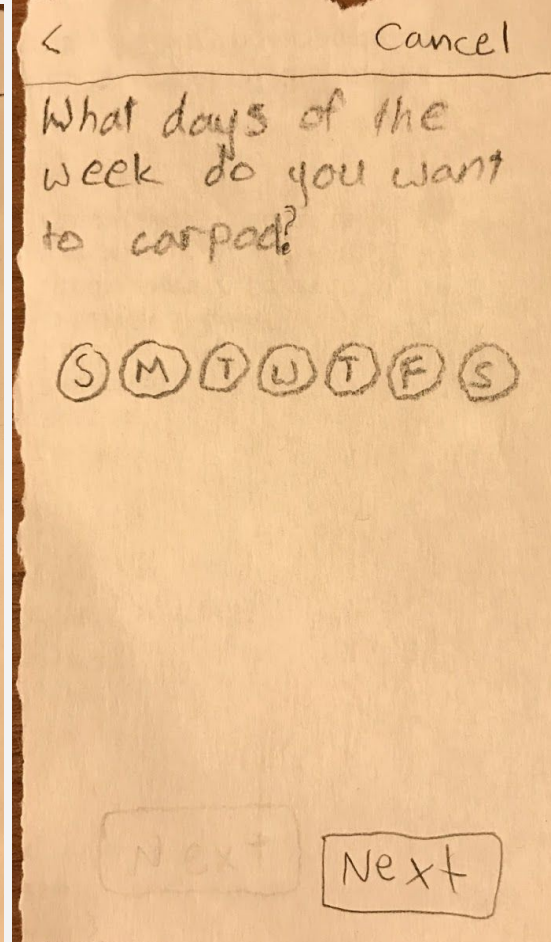 < Cancel
What days of the
week do you want
to carpool?
S M T W T F S
Next Next